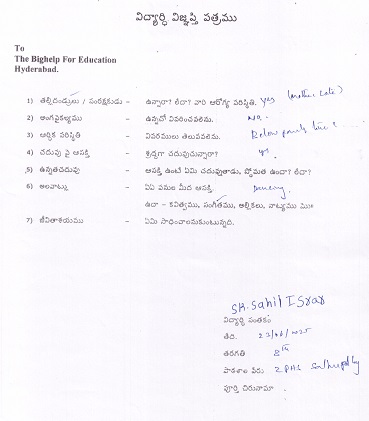 విద్యార్థి విజ్ఞప్తి పత్రము
To
The Bighelp For Education
Hyderabad.
1) తల్లిదండ్రులు / సంరక్షకుడు - ఉన్నారా? లేదా? వారి ఆరోగ్య పరిస్థితి. yes (mother late)
2) అంగవైకల్యము - ఉన్నచో వివరించవలెను. No.
3) ఆర్థిక పరిస్థితి - వివరములు తెలుపవలెను. Below poverty line
4) చదువు పై ఆసక్తి - శ్రద్ధగా చదువుచున్నారా? yes
5) ఉన్నతచదువు - ఆసక్తి ఉంటే ఏమి చదువుతాడు, స్తోమత ఉందా? లేదా?
6) అలవాట్లు - ఏఏ పనుల మీద ఆసక్తి. Dancing
ఉదా - కవిత్వము, సంగీతము, అల్లికలు, నాట్యము మొ॥
7) జీవితాశయము - ఏమి సాధించాలనుకుంటున్నది.
SK. Sahil Israr
విద్యార్థి సంతకం
తేది.
తరగతి 8th
పాఠశాల పేరు ZPHS Sathupally
పూర్తి చిరునామా